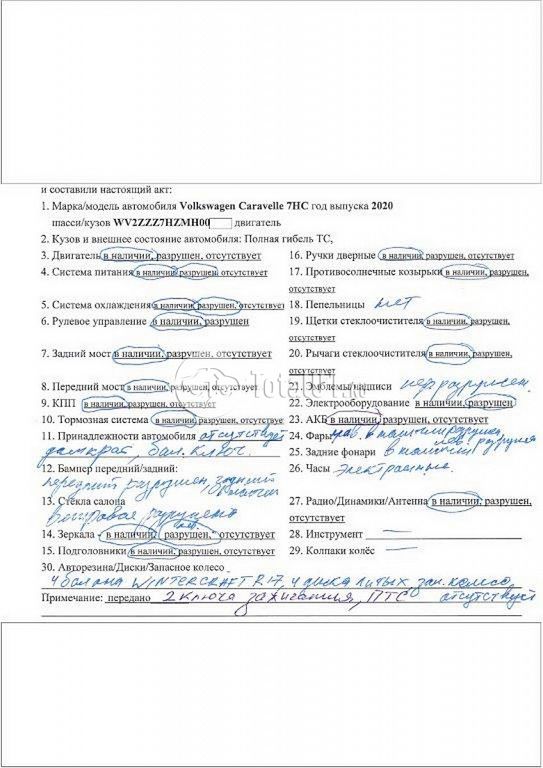 и составили настоящий акт:
1. Марка/модель автомобиля Volkswagen Caravelle 7HC год выпуска 2020
шасси/кузов WV2ZZZ7HZMH00 двигатель
2. Кузов и внешнее состояние автомобиля: Полная гибель ТС,
3. Двигатель в наличии, разрушен, отсутствует
4. Система питания в наличии, разрушен, отсутствует
5. Система охлаждения в наличии, разрушен, отсутствует
6. Рулевое управление в наличии, разрушен
7. Задний мост в наличии, разрушен, отсутствует
8. Передний мост в наличии, разрушен, отсутствует
9. КПП в наличии, разрушен, отсутствует
10. Тормозная система в наличии, разрушен, отсутствует
11. Принадлежности автомобиля отсутствует
домкрат, бал. ключ.
12. Бампер передний/задний:
передний разрушен, задний
в наличии
13. Стёкла салона
разрушено
14. Зеркала - в наличии, разрушен, отсутствует
15. Подголовники в наличии, разрушен, отсутствует
16. Ручки дверные в наличии, разрушен, отсутствует
17. Противосолнечные козырьки в наличии, разрушен,
отсутствует
18. Пепельницы нет
19. Щетки стеклоочистителя в наличии, разрушен,
отсутствует
20. Рычаги стеклоочистителя в наличии, разрушен,
отсутствует
21. Эмблемы/надписи не разрушен.
22. Электрооборудование в наличии, разрушен
23. АКБ в наличии, разрушен, отсутствует
24. Фары в наличии разрушен
25. Задние фонари в наличии
26. Часы электронные.
27. Радио/Динамики/Антенна в наличии, разрушен,
отсутствует
28. Инструмент —
29. Колпаки колёс —
30. Авторезина/Диски/Запасное колесо
4 балона WINTERCRAFT R17, 4 диска литых зап. колесо
Примечание: передано 2 ключа зажигания, ПТС отсутствует
Total01.ru